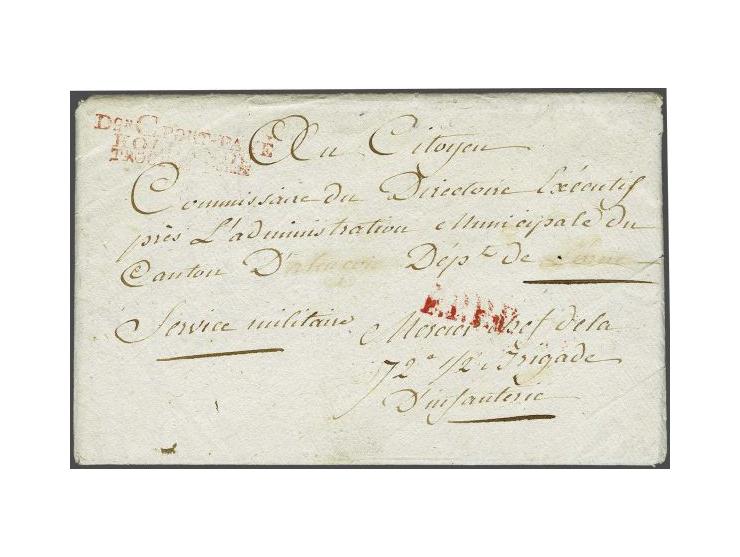 Don C. PORT-PAYÉ
Au Citoyen
Commissaire du Directoire Exécutif
près L'administration Municipale du
Canton D'alençon Dépt. de L'orne
Service militaire
Mercier chef de la
72e 1/2 Brigade
D'infanterie